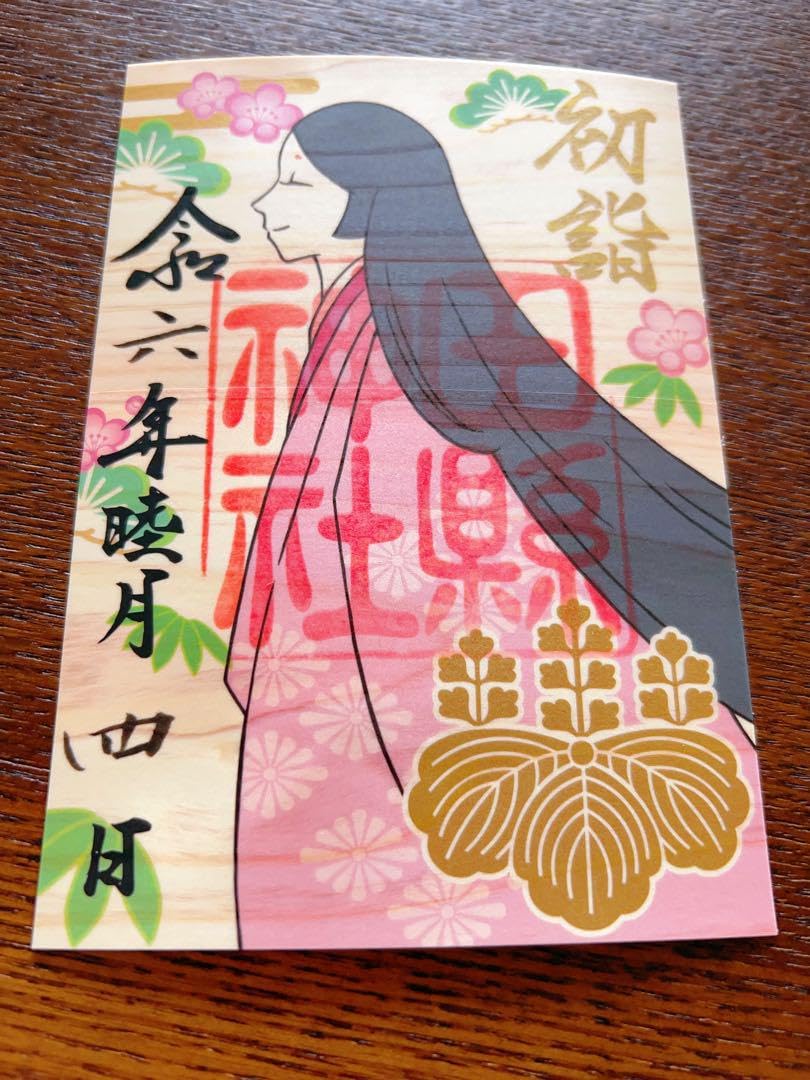 初詣
田縣
神社
令和六年睦月四日